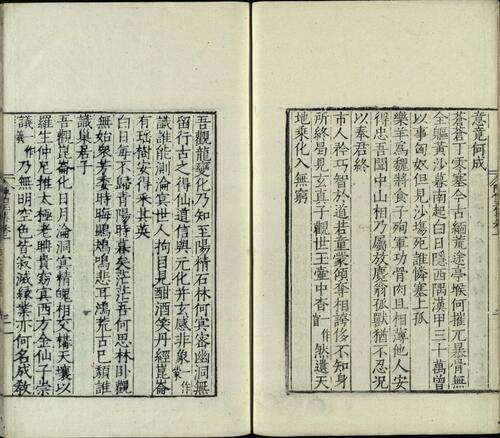 意竟何成
蒼蒼丁零塞今古緬荒途亭堠何摧兀暴骨無
全軀黃沙暮南起白日隱西隅漢甲三十萬曾
以事匈奴但見沙場死誰憐塞上孤
樂羊為魏將食子殉軍功骨肉且相薄他人安
得忠吾聞中山相乃屬放麑翁孤獸猶不忍況
以奉君終
市人矜巧智於道若童蒙傾奪相誇侈不知身
所終曷見玄真子觀世玉壺中杳一作然遺天
地乘化入無窮
吾觀龍變化乃知至陽精石林何冥密幽洞無
留行古之得仙道信與元化并玄感非象一作
識誰能測淪冥世人拘目見酣酒笑丹經崑崙
有瑤樹安得采其英
白日每不歸青陽時暮矣茫茫吾何思林臥觀
無始眾芳委時晦鶗鴂鳴悲耳鴻荒古已頹誰
識巢居子
吾觀崑崙化日月淪洞冥精魄相交構天壤以
羅生仲尼推太極老聃貴窈冥西方金仙子崇
議一作義乃無明空色皆寂滅緣業亦何名成教